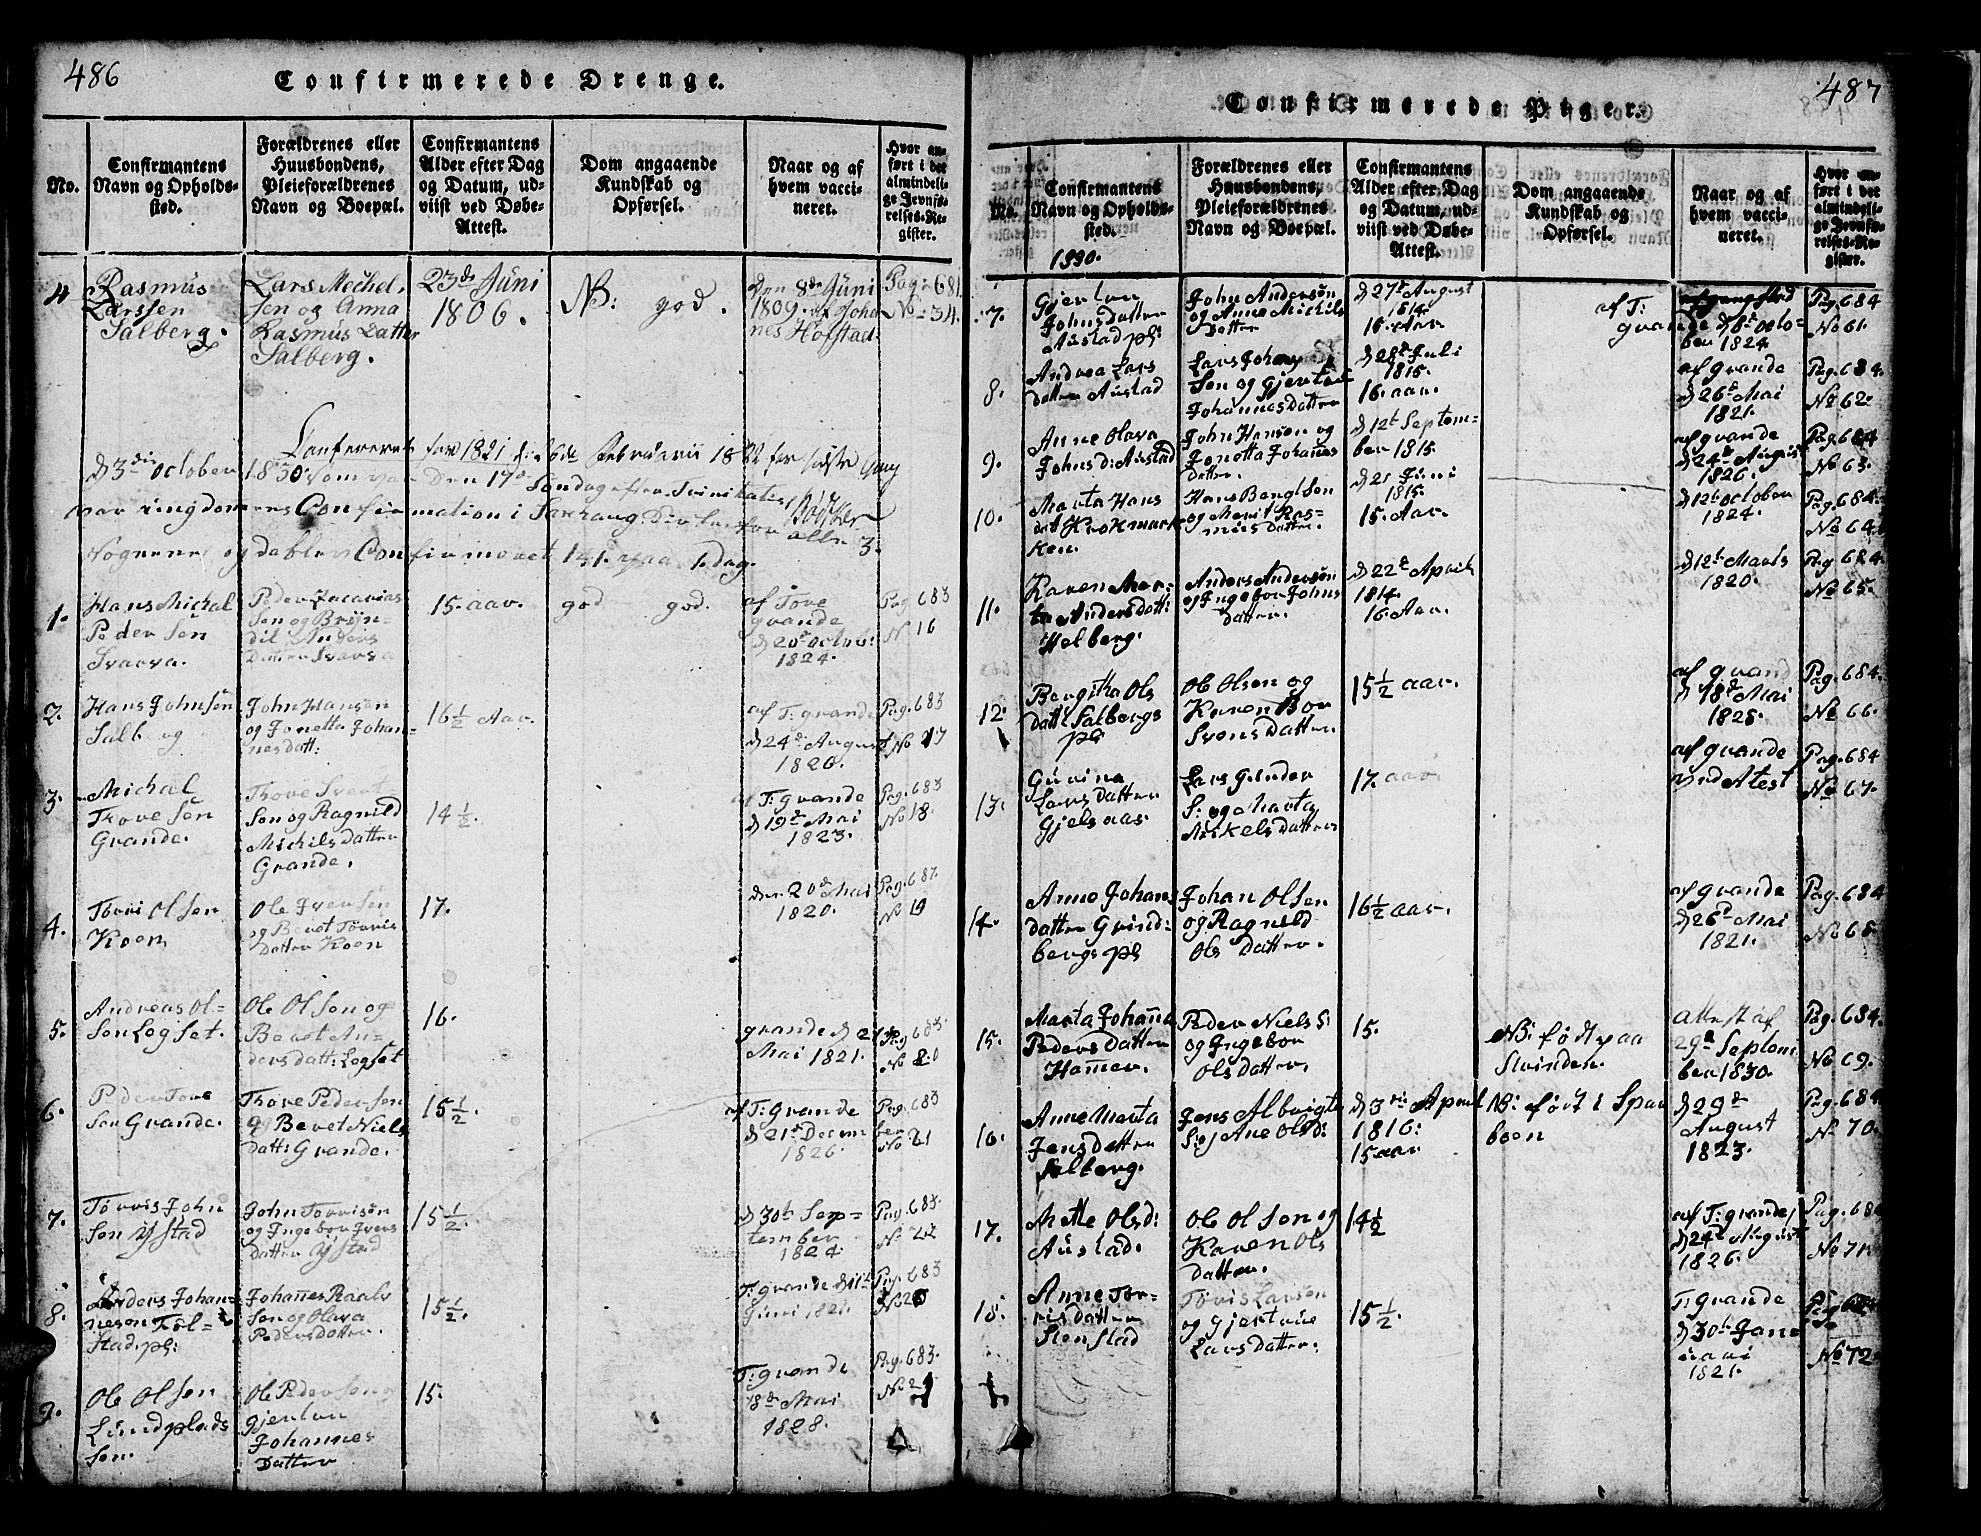 486
Confirmerede Drenge.
No.
Confirmantens
Navn og Opholds-
sted.
Forældrenes eller
Huusbondens,
Pleieforældrenes
Navn og Boepæl.
Confirmantens
Alder efter Dag
og Datum, ud-
viist ved Døbe-
Attest.
Dom angaaende
Kundskab og
Opførsel.
Naar og af
hvem vacci-
neret.
Hvor an-
ført i det
almindeli-
ge Jevnfø-
relses-Re-
gister.
4
Rasmus
Larssen
Salberg.
Lars Mechel.
sen og Anna
Rasmus Datter
Salberg.
23de Juni
1806.
NB: god.
Den 8de Juni
1809. af Joha
nes Hofstad.
Pag: 681.
No 34.
Confereret for 1821 d: 20de Februarii 1822 for sidste Gang
d 3die October 1830 som var Den 17de Søndag efter Trinitatis
var ungdomens Confirmation i
Sognene og da blev Confirmeret 151. paa 1. Dag.
1.
Hans Michal
Peder Sen
Svarva.
Peder Zacarias
Sen og Brÿn-
dil Anders
Datter Svarva
15. aar.
god god.
af Tove
grande
d 20de octob:
1824.
Pag. 683
N 16
2.
Hans Johnsen
Salb og
John Hansen
og Jonetta Johan-
nesdatt:
16 1/2 Aar.
af T: grande
d 24de August
1820.
Pag. 683
No 17
3.
Michal
Trove Sen
Grande.
Thove Svent
Sen og Ragnild
Michils Datter
Grande.
14 1/2.
af T: grande
d 19de Mai
1823.
Pag. 683
No 18.
4.
Torris Olsen
Koen
Ole Iversen
og Beret Torris
Datter Koen
17.
den 20de Mai
1820.
Pag. 683.
No 19
5.
Andreas Ol-
Sen Løgset.
Ole Olsen og
Beret An-
dersdatt: Løgset
16.
grande d 21de
Mai 1821.
Pag 683.
No 20
6.
Peder Tove
Sen Grande.
Thove Peder Sen
og Beret Niels
datt: Grande.
15 1/2.
af T: Grande
d 21de Decem
ber
1826.
Pag. 683
No 21
7.
Torris John
Sen Ystad
John Torrisen
og Ingebor Ivers
datter Ystad
15 1/2.
d 30te Sep-
tember
1824.
Pag. 683.
No 22
8.
Anders Johan-
nesen Fol-
Stad. pl:
Johanes Raals
Sen og Olava
Pedersdatter.
15 1/2.
T: grande d 11te
Juni 1821.
Pag. 683
9.
Ole Olsen
Lundplads
Sen.
Ole Peder Sen
Gjertru
Johannes
Datter
15.
T: grande
18de Mai
1828.
Pag. 683.
487
Confirmerede Piger.
No.
Confirmantens
Navn og Opholds-
sted.
1830.
Forældrenes eller
Huusbondens,
Pleieforældrenes
Navn og Boepæl.
Confirmantens
Alder efter Dag
og Datum, ud-
viist ved Døbe-
Attest.
Dom angaaende
Kundskab og
Opførsel.
Naar og af
hvem vacci-
neret.
Hvor an-
ført i det
almindeli-
ge Jevnfø-
relses-Re-
gister.
7.
Gjertru
Johnsdatter
Austad pl:
John Andersen
og Anne Michils
Datter
d 27de August
1814
16. Aar
af T:
grande d 8de octo-
ber 1824.
Pag 684
No 61.
8.
Andrea Lars
datter Austad
Lars Johan
Sen og Gjertru
Johannes Datter
d 28de Juli
1815.
16. aar.
af grande
d 26de Mai
1821.
Pag. 684.
No 62.
9.
Anne Olava
Johnsd: Austad
John Hansen og
Jonetta Johanes
datter.
d 12te Septem-
ber 1815.
af grande
d 24de August
1826.
Pag. 684
No 63.
10.
Marta Hans
dat Krokmarke
ken.
Hans Bengtsen
og Merit Ras-
mus datter.
d 21 Juni
1815.
15. Aar.
d 12te October
1824.
Pag. 684.
No 64
11.
Karen Mar-
ta Andersdatt:
Helberg.
Anders Andersen
og Ingebor Johns
datter.
d 22de April
1814.
16. Aar.
d 12te Marts
1820.
Pag 684.
No 65.
12.
Bergitha Ols
datt: Salbergs
pl:
Ole Olsen og
Karen Bor
Svens Datter.
15 1/2 aar.
af grand
d 18de Mai
1825.
Pag. 684.
No 66.
13.
Gurina
Lars Datter
Gjelsaas.
Lars Gunder
S: og Marta
Mikels Datter
17. aar.
af grande
ved Atest
Pag. 684
No 67.
14.
Anne Johans
datter Grind-
bergs pl:
Johan Olsen
og Ragnild
Ols Datter.
16 1/2 aar.
af grande
d 26de Mai
1821.
Pag. 684
No 68.
15.
Marta Johanna
Peders Datter
Hamer.
Peder Niels S:
og Ingebor
Olsdatter.
15.
NB: født paa
Stvinden.
Attest af
29de Septem
ber 1830.
Pag. 684.
No 69.
16.
Anne Marta
Jensdatter
Salberg.
Jens Albrigt
S: og Ane Olsd:
d 3die April
1816:
15 aar
NB: født i Spar
boen
d 29de
August
1823.
Pag. 684
No 70.
17.
Mette Olsd:
Austad.
Ole Olsen og
Karen Ols
datter.
14 1/2
af T: grande
d 24de August
1826.
Pag. 684
No 71.
18.
Anne Tor-
ris datter
Stenstad
Toris Larsen
og Gjertrue
Larsdatter.
15 1/2.
T: Grande
d 30te Janu
uari
1821.
No 72.